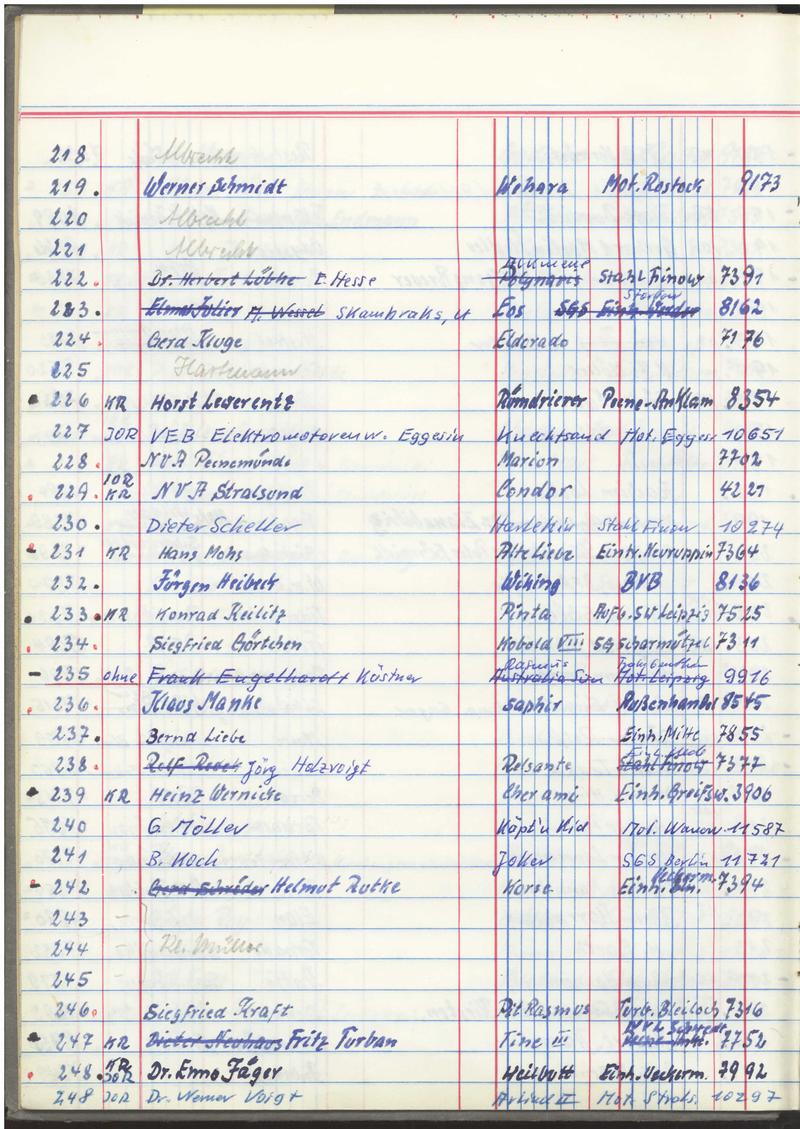 218 Albrecht
219. Werner Schmidt Wohara Mot. Rostock 9173
220 Albrecht
221 Albrecht
Alkmene
222. Dr. Herbert Lübke E. Hesse Polynaris Stahl Finow 7391
Storkow
223. Elmo Julier H. Wessel Skambraks, U Eos SGS Einh. Werder 8162
224. Gerd Kluge Eldorado 7176
225 Hartmann
226 KR Horst Lewerentz Römdrierer Peene-Anklam 8354
227 JOR VEB Elektromotorenw. Eggesin Knechtsand Mot. Eggesi 10651
228. NVA Peenemünde Marion 7702
229. JOR KR NVA Stralsund Condor 4221
230. Dieter Scheller Harlekin Stahl Finow 10274
231 KR Hans Mohs Alte Liebe Eintr. Neuruppin 7364
232. Jürgen Heibeck Wiking BVB 8136
233. KR Konrad Keilitz Pinta Aufb. SW Leipzig 7525
234. Siegfried Görtchen Kobold VIII SG Scharmützel 7311
Rasmus
235 ohne Frank Engelhardt Küstner Australia Sun Mot. Leipzig 9916
236. Klaus Manke Saphir Außenhandel 8545
237. Bernd Liebe Einh. Mitte 7855
238. Rolf Jörg Holzvoigt Relsante Stahl Finow 7377
239 KR Heinz Wernicke Cher ami Einh. Greifsw. 3906
240 G. Möller Käpt'n Kid Mot. Warnow 11587
241 B. Koch Joker SGS Berlin 11721
Ueckerm.
242 Gerd Schröder Helmut Rutke Korse Einh. Bln. 7394
243 –
244 – Kl. Müller
245 –
246. Siegfried Kraft Pit Rasmus Turb. Bleiloch 7316
Schwedt
247 KR Dieter Neuhaus Fritz Turban Tine III 7752
248. KR JOR Dr. Enno Jäger Heilbutt Einh. Ueckerm. 7992
248 JOR Dr. Werner Voigt II Mot. Strals. 10297